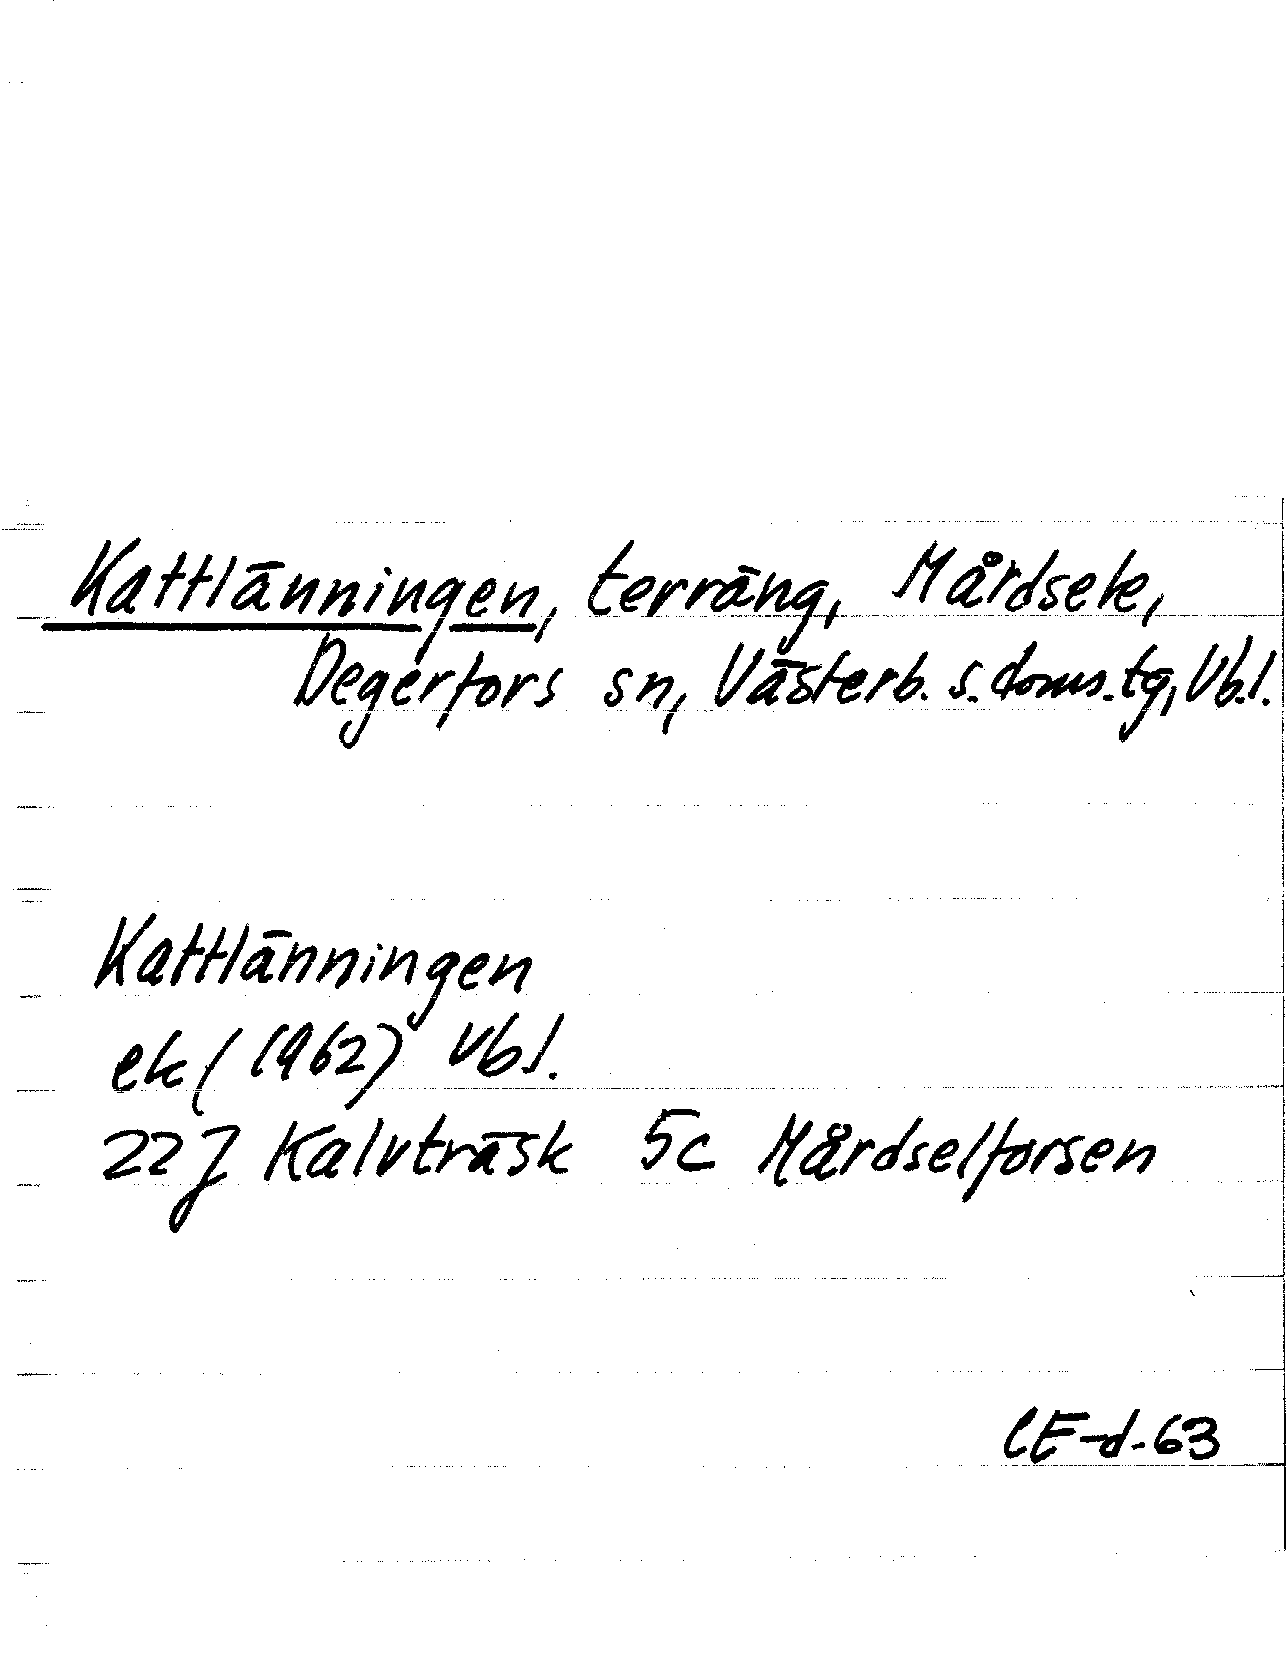 Kattlänningen, terräng, Mårdsele,
Degerfors sn, Västerb. s. doms. tg, Vb.l.
Kattlänningen
ek (1962) Vbl.
22J Kalvträsk 5c Mårdselforsen
CE-d-63